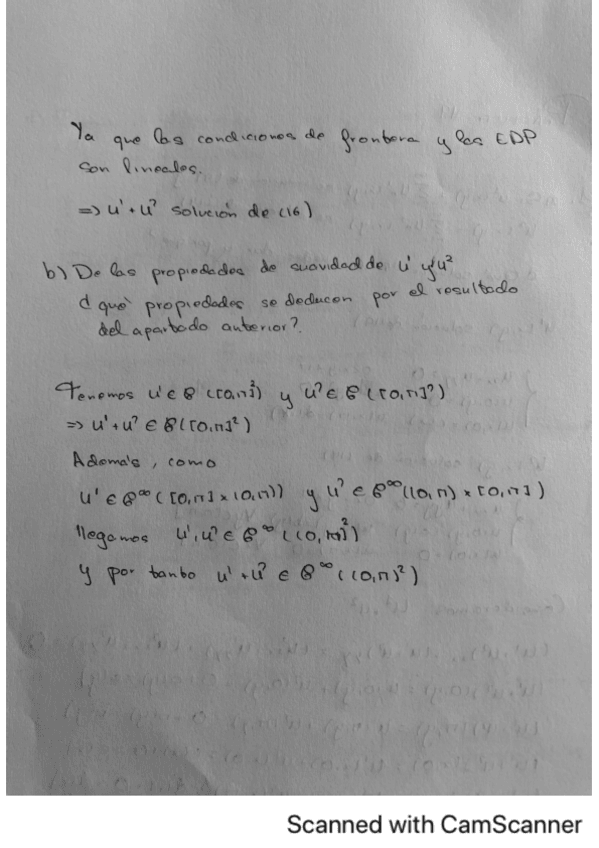 Ya que las condiciones de frontera y las EDP
son lineales.
=> u¹ + u² solución de (16)
b) De las propiedades de suavidad de u¹ y u²
¿ què propiedades se deducen por el resultado
del apartado anterior?
Tenemos u¹ ∈ C ([0,π]²) y u² ∈ C ([0,π]²)
=> u¹ + u² ∈ C([0,π]²)
Ademas, como
u¹ ∈ C^∞ ([0,π] × (0,π)) y u² ∈ C^∞((0,π) × [0,π])
llegamos u¹, u² ∈ C^∞ ((0,π)²)
y por tanto u¹ + u² ∈ C^∞ ((0,π)²)
Scanned with CamScanner